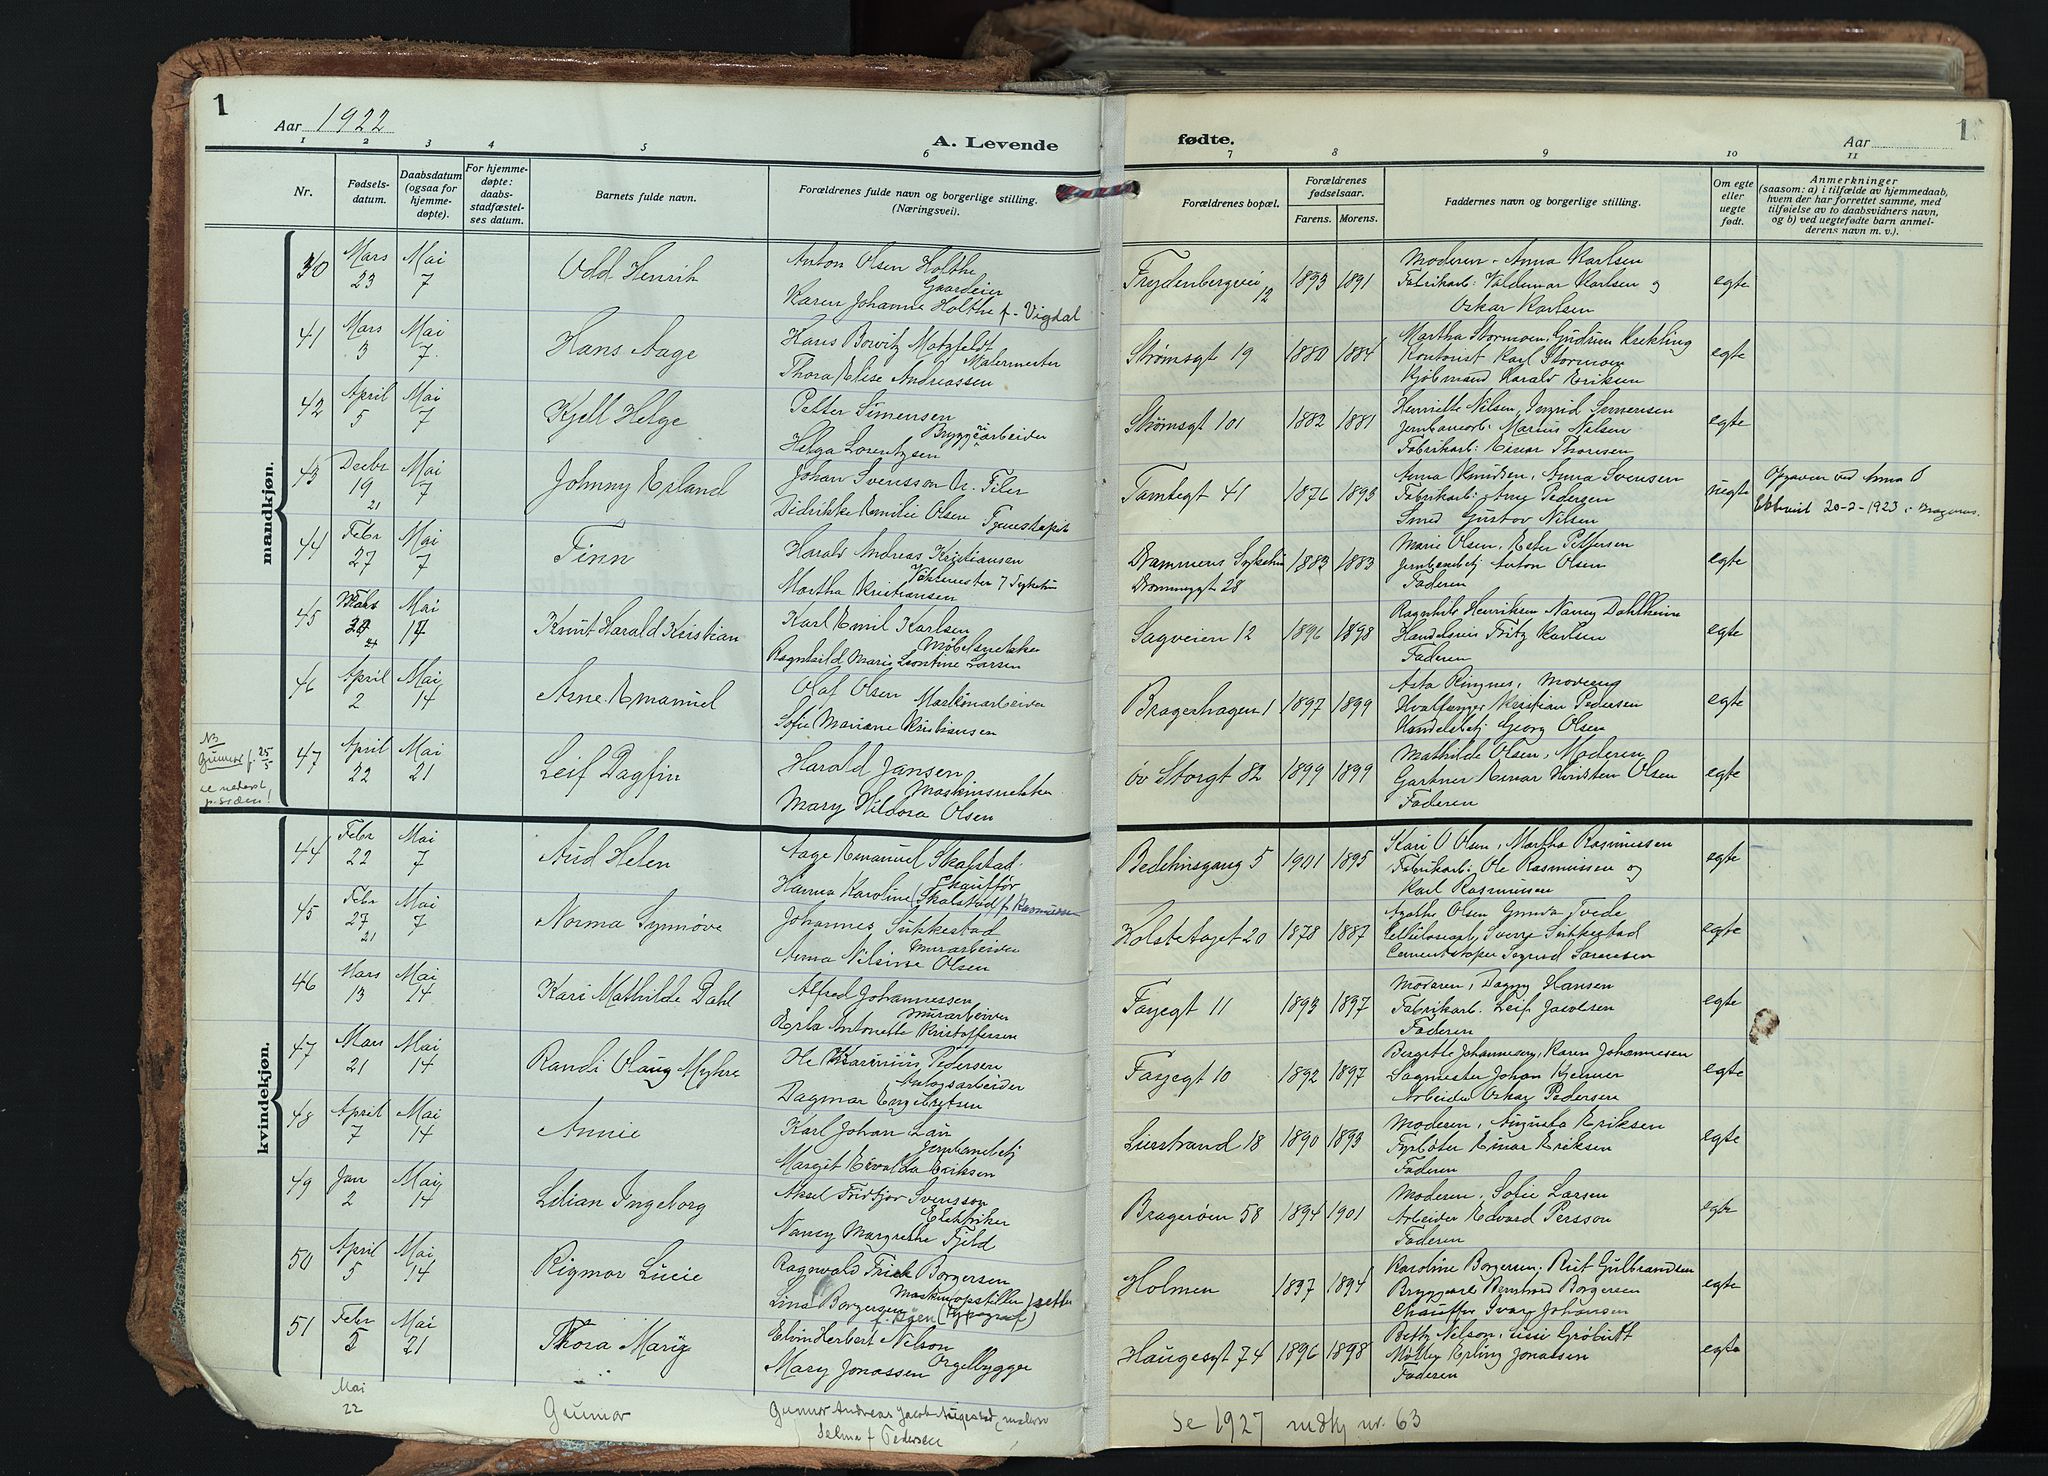 1
Aar 1922
A. Levende
1 2 3 4 5 6
Nr.
Fødselsdatum.
Daabsdatum (ogsaa for hjemmedøpte).
For hjemmedøpte: daabsstadfæstelses datum.
Barnets fulde navn.
Forældrenes fulde navn og borgerlige stilling. (Næringsvei).
mandkjøn.
30 Mars 23 Mai 7 Odd Henrik
Anton Olsen Holthe
Gaardeier
Karen Johanne Holthe f. Vigdal
41 Mars 3 Mai 7 Hans Aage
Hans Bowitz Motzfeldt
Malermester
Thora Elise Andreassen
42 April 5 Mai 7 Kjell Helge
Petter Simensen
Bryggeriarbeider
Helga Lorentzen
43 Decbr 19 21 Mai 7 Johnny Erland
Johan Svensson
Filer
Didrikke Emilie Olsen
44 Febr 27 Mai 7 Finn
Harald Andreas Kristiansen
Martha Kristiansen
45 Mai 14 Knut Harald Kristian
Karl Emil Karlsen
Møbelsnekker
Ragnhild Marie Leontine Larsen
46 April 2 Mai 14 Arne Emanuel
Olaf Olsen Maskinarbeider
Sofie Mariane Kristiansen
NB
Gunnar f. 25/5
se nederst
p. siden!
47 April 22 Mai 21 Leif Dagfin
Harald Jansen
Maskinsnekker
Mary Hildora Olsen
kvindekjøn.
44 Febr 22 Mai 7 Aud Helen
Aage Emanuel Skalstad
Chauffør
Hanna Karoline (Skalstad) f. Rasmussen
45 Febr 27 21 Mai 7 Norma Synnøve
Johannes Sukkestad
Murarbeider
Anna Nilsine Olsen
46 Mars 13 Mai 14 Kari Mathilde Dahl
Alfred Johannessen
Murarbeider
Erla Antonette Kristoffersen
47 Mars 21 Mai 14 Randi Olaug Myhre
Ole Pedersen
Dagmar Engebretsen
48 April 7 Mai 14 Annie
Karl Johan Lau
Jernbanebetj
Margit Evalda Eriksen
49 Jan 2 Mai 14 Lilian Ingeborg
Aksel Fridtjor Svensson
Elektriker
Nancy Margrethe Fjeld
50 April 5 Mai 14 Rigmor Lucie
Ragnvald Borgersen
Maskinopstiller) sætter
Lina Borgersen (Typograf)
51 Febr 5 Mai 21 Thora Marie
Elvin Herbert Nilson
Orgelbygger
Mary Jonassen
Mai 22 Gunnar
Gunnar Andreas Jacob Augestad, maler
Selma f Pedersen
fødte.
1
Aar
7 8 9 10 11
Forældrenes bopæl.
Forældrenes fødselsaar.
Farens. Morens.
Faddernes navn og borgerlige stilling.
Om egte eller uegte født.
Anmerkninger
(saasom: a) i tilfælde av hjemmedaab, hvem der har forrettet samme, med tilføielse av to daabsvidners navn, og b) ved uegtefødte barn anmelderens navn m. v.).
Frydenbergveien 12 1893 1891
Moderen - Anna Karlsen
Fabrikarb: Valdemar Karlsen og
Oskar Karlsen
egte
Strømsgt 19 1880 1884
Martha Stormoen, Gudrun Krekling
Kontorist Karl Stormoen
Kjøbmand Harald Eriksen
egte
Strømsgt 101 1882 1881
Henriette Nilsen, Ingrid Simensen
Jernbanearb: Marius Nilsen
Fabrikarb: Einar Thoresen
egte
Tomtegt 41 1876 1893
Anna Knudsen, Anna Svensen
Fabrikarb: Arne Pedersen
Smed Gustov Nilsen
uegte
20-2-1923
Drammens Sykehus
28 1883 1883
Marie Olsen, Ester Pettersen
Jernbanebetj Anton Olsen
Faderen
egte
Sagveien 12 1896 1898
Ragnhild Henriksen Nancy Dahlheim
Fritz Karlsen
Faderen
egte
Bragerhagen 1 1897 1899
Asta Ringnes,
Hvalfanger Kristian Pedersen
Handelsbetj Georg Olsen
egte
øv Storgt 82 1899 1899
Mathilde Olsen, Moderen
Gartner Einar Olsen
Faderen
egte
5 1901 1895
Kari O Olsen, Martha Rasmussen
Fabrikarb: Ole Rasmussen og
Karl Rasmussen
egte
20 1878 1887
Agathe Olsen Gunda Tvede
Cellulosearb, Sverre Sukkestad
Cementstøper Sigurd Sørensen
egte
Fayegt 11 1893 1897
Moderen, Dagny Hansen
Fabrikarb. Leif Jacobsen
Faderen
egte
Fayegt 10 1892 1897
Bergitte Johannesen, Karen Johannesen
Sagmester Johan
Arbeider Oskar Pedersen
egte
Lierstrand 18 1890 1893
Moderen, Augusta Eriksen
Fyrbøter Einar Eriksen
Faderen
egte
Bragerøen 58 1894 1901
Moderen, Sofie Larsen
Arbeider Edvard Persson
Faderen
egte
Holmen 1897 1894
Karoline Borgersen, Rut Gulbrandsen
Bryggearb Bernhard Borgersen
Chauffør Johansen
egte
Haugesgt 74 1896 1898
Betty Nilson,
Erling Jonassen
Faderen
egte
Se 1927 mdkj nr. 63